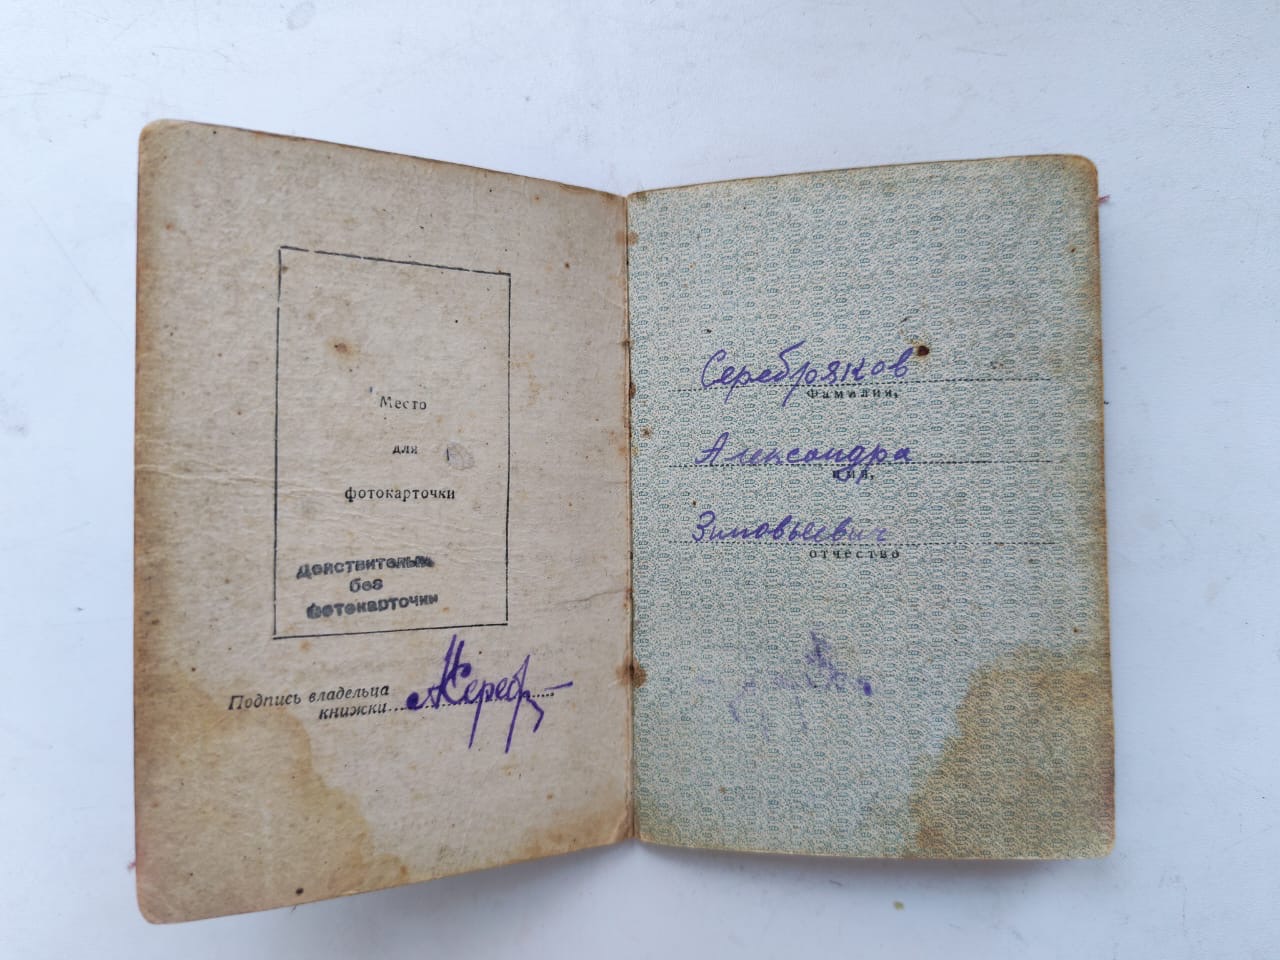 Место
для
фотокарточки
Действительна
без
фотокарточки
Подпись владельца
книжки
АСереб
Серебряков
Фамилия,
Александра
имя,
Зиновьевич
отчество